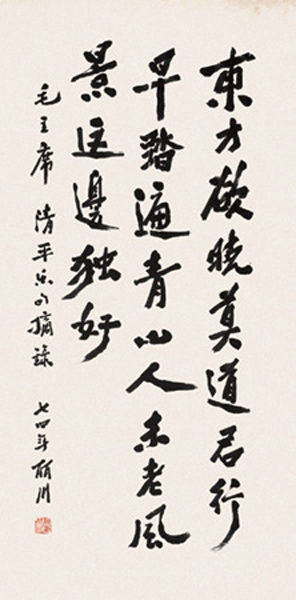 東方欲曉莫道君行
早踏遍青山人未老風
景這邊独好
毛主席清平乐句摘錄 七四年